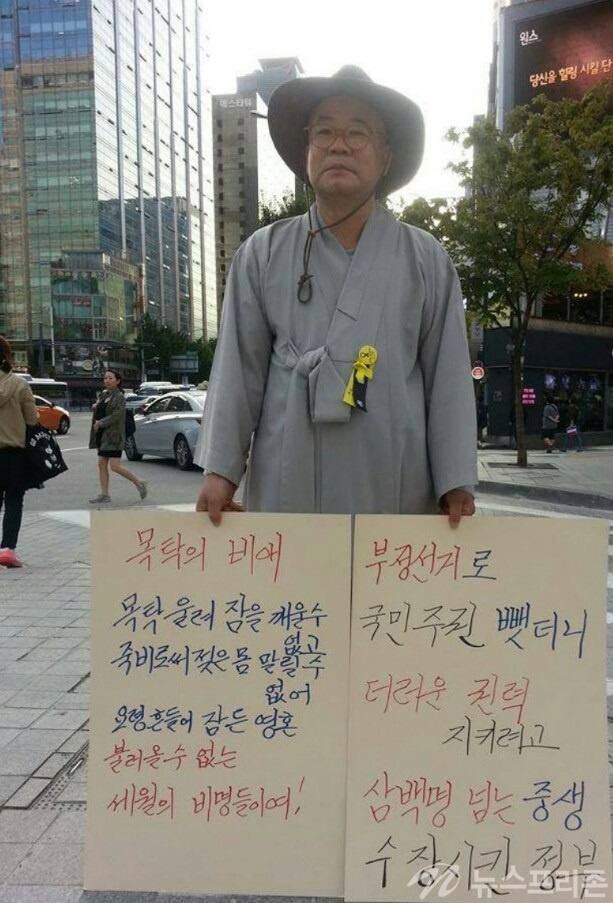 원스
당신을 힐링 시킬 단
멕스타워
목탁의 비애
목탁 울려 잠을 깨울수
없고
죽비로써 젖은 몸 말릴 수
없어
요령흔들어 잠든 영혼
불러올수 없는
세월의 비명들이여!
부정선거로
국민주권 뺏더니
더러운 권력
지키려고
삼백명 넘는 중생
수장시킨 정부
뉴스프리존